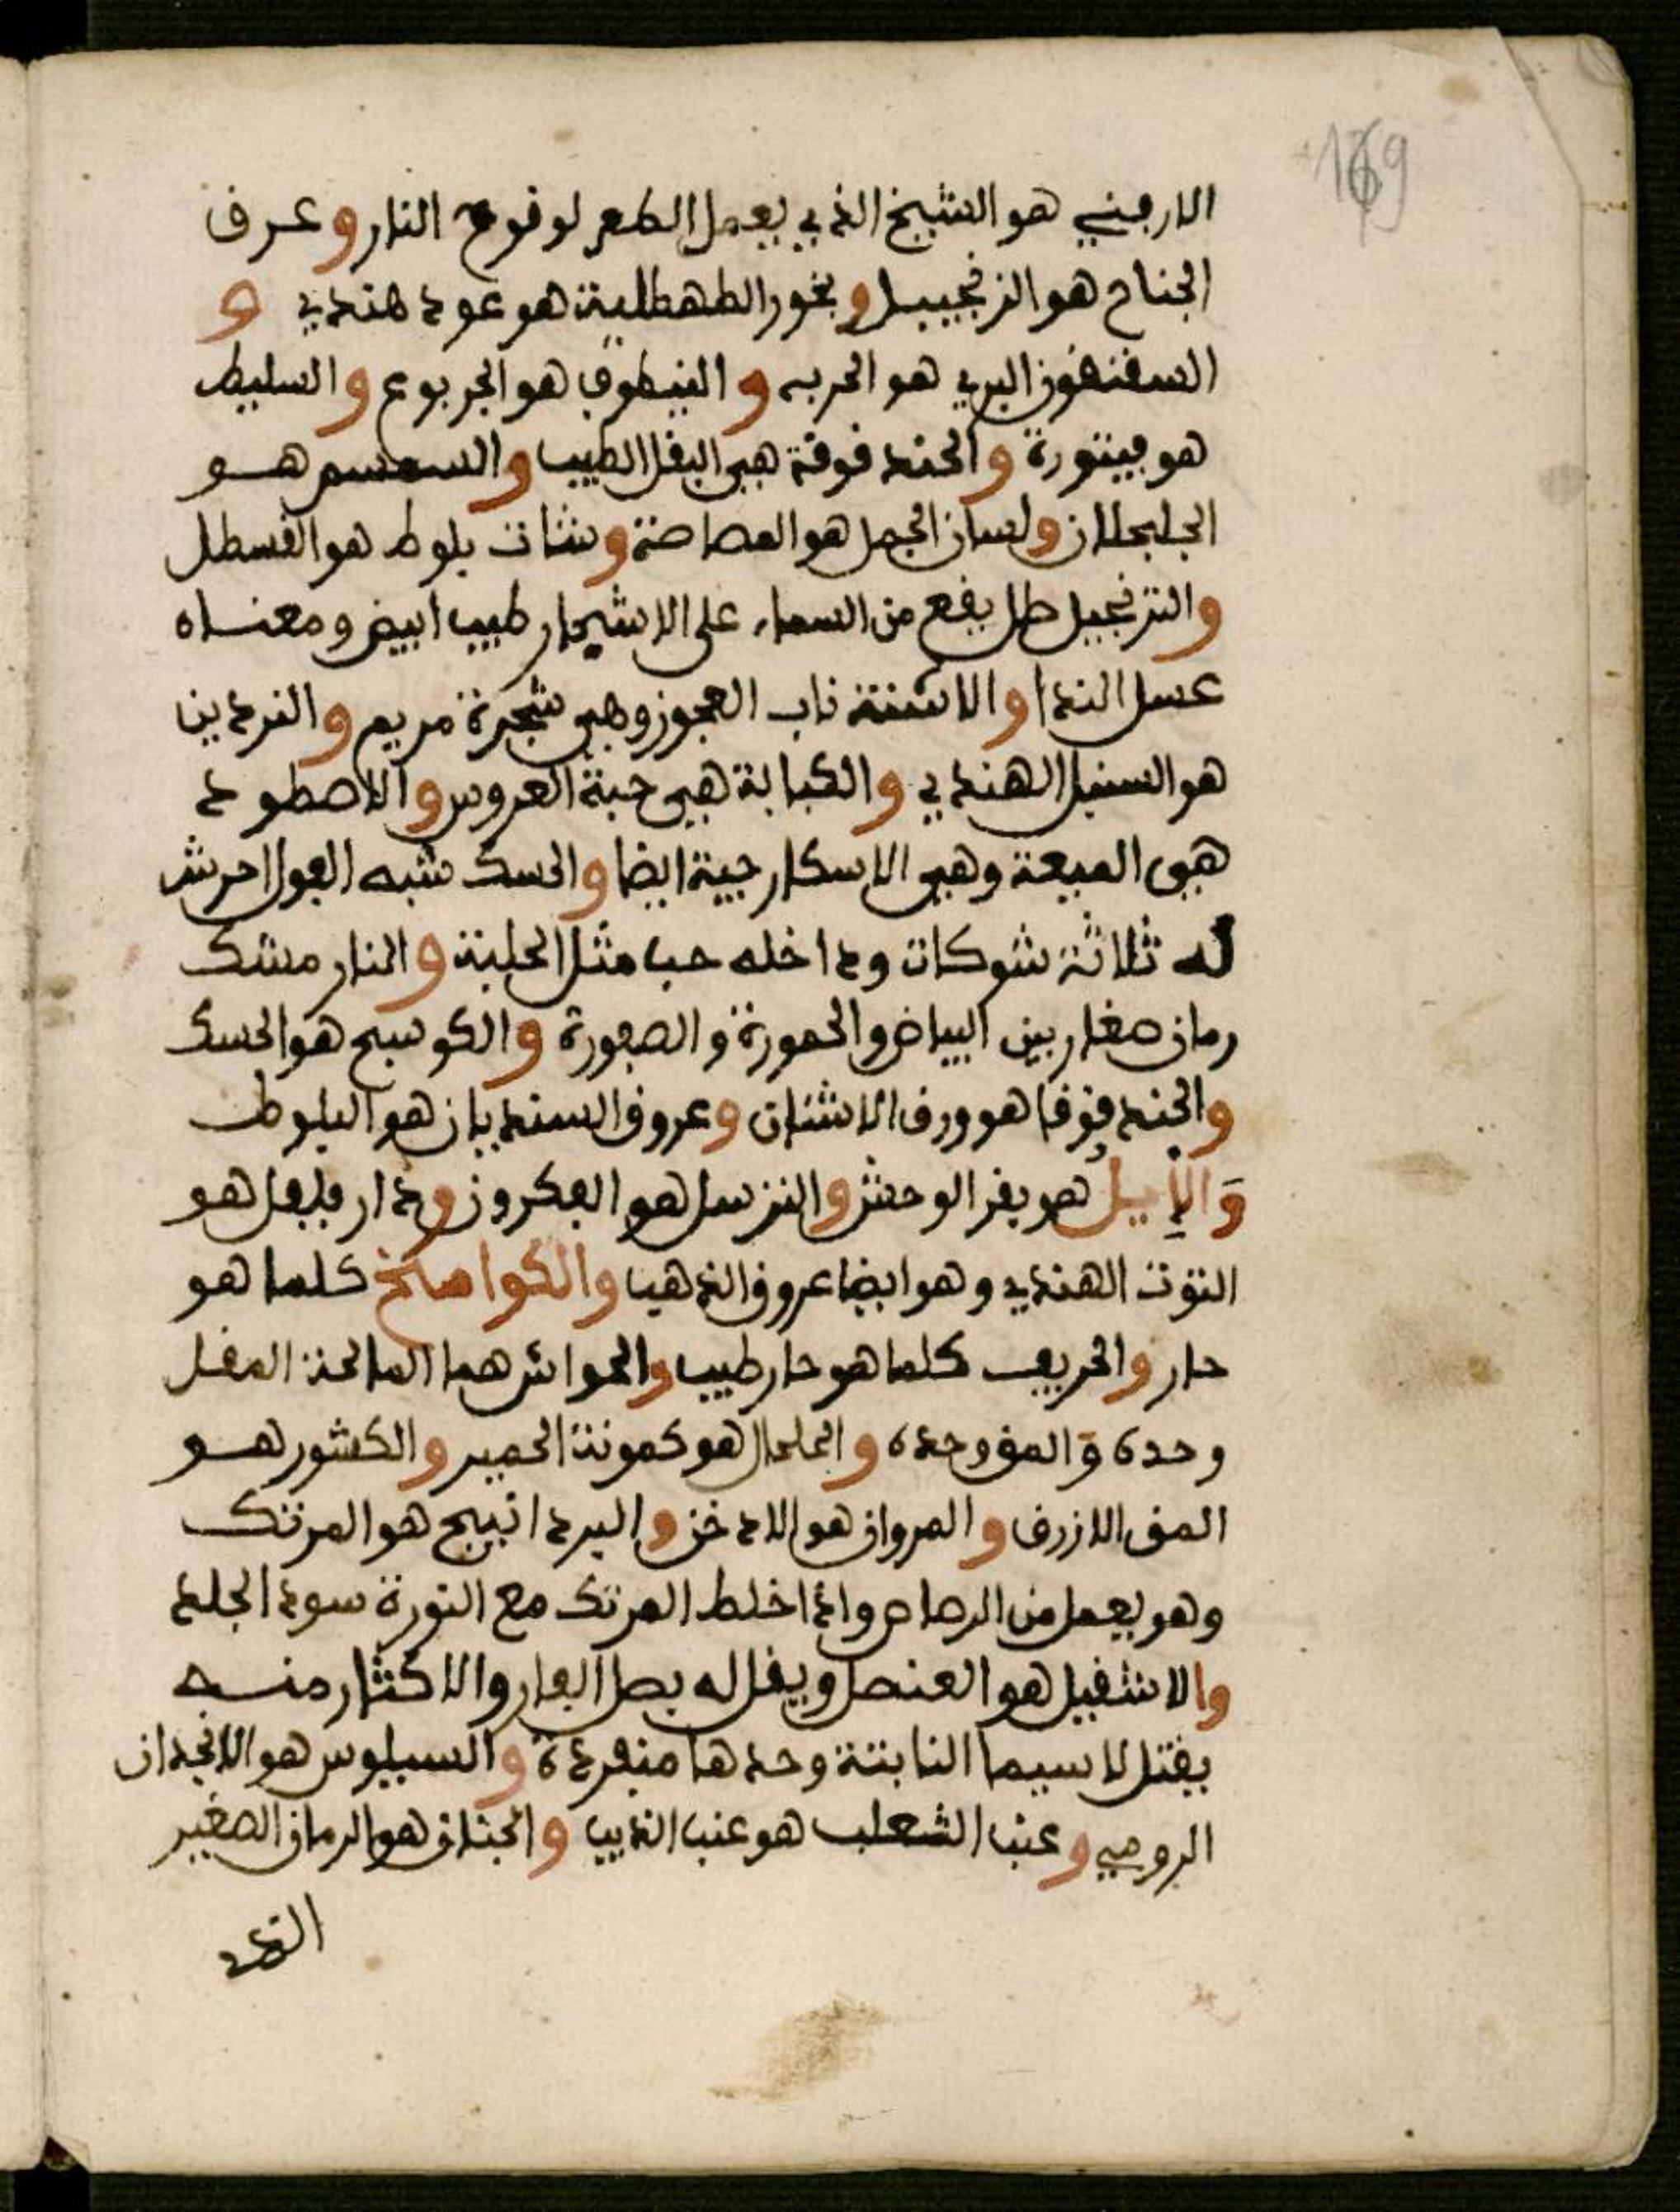 169
الارميني هو الشيخ الذي يعمل الطعم لوقوع النار وعرق
الجناح هو الزنجبيل وبخور الطهطلية هو عود هندي و
السقنقور البري هو الحربه و هو الجربوع والسليط
هو والحند قوقة هي البقل الطيب والسمسم هو
الجلجلان ولسان الجمل هو المصاصة وشات بلوط هو القسطل
والترنجبيل طل يقع من السماء على الاشيجار طيب ابيض ومعناه
عسل الندا والاشنة ناب العجوز وهي شجرة مريم والنردين
هو السنبل الهندي والكبابة هي حبة العروس والاصطود
هي الميعة وهي الاسكارجية ايضا والحسك شبه الفول احرش
له ثلاثة شوكات وداخله حب مثل الحلبة والنار مشك
رمان صغار بين البياض والحمورة والصفورة والكوسج هو الحسك
والحند قوقا هو ورق الاشنان وعروق السنديان هو البلوط
وَالإيل هو بقر الوحش والنرسل هو الفكرون ودار فلفل هو
التوت الهندي وهو ايضا عروق الذهب والكوامخ كلما هو
حار والحريف كلما هو حار طيب هما المالحة المقل
وحده والمق وحده هو كمونة الحمير والكشور هو
المق الازرق والمروان هو الادخن والبردانيج هو المرتك
وهو يعمل من الرصاص واذا خلط المرتك مع النورة سود الجلد
والاشقيل هو العنصل ويقل له بصل الفار والاكثار منه
يقتل لاسيما النابتة وحدها منفردة والسيلوس هو الانجدان
الرومي وعنب الثعلب هو عنب الذيب هو الرمان الصغير